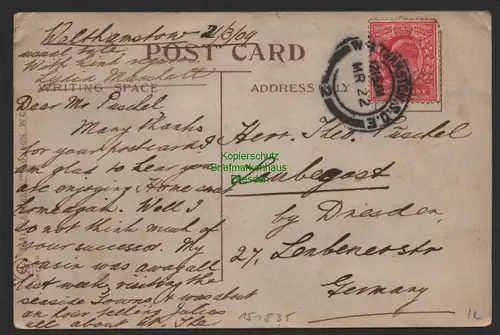 Walthamstow 2/3/09
usual late.
With kind regards
Lydia Marshall
POST CARD
WRITING SPACE
ADDRESS
WALTHAMSTOW.S.O.E
MR 22
Dear Mr. Puschel
Many thanks
for your postcards. I
am glad to hear you
are enjoying Home and
home again. Well I
do not think much of
your successor. My
cousin was away all
last week, visiting the
seaside Towns, & was about
an hour telling Julius
all about it. He
Herr. Theo. Püschel
by Dresden,
27, Leubenerstr
Germany
Kopierschutz
Briefmarkenhaus
Dresden
151835
12